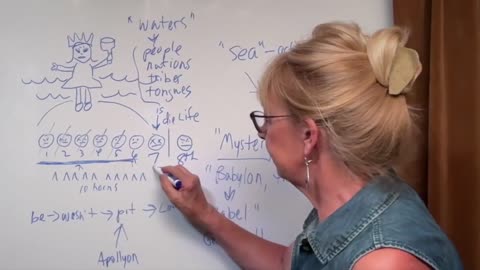 "waters"
people
nations
tribes
tongues
is
die Life
1 2 3 4 5 6 7 8th
10 horns
be → wasn't → pit →
Apollyon
"sea"
"Myster
"Babylon,
"Babel"